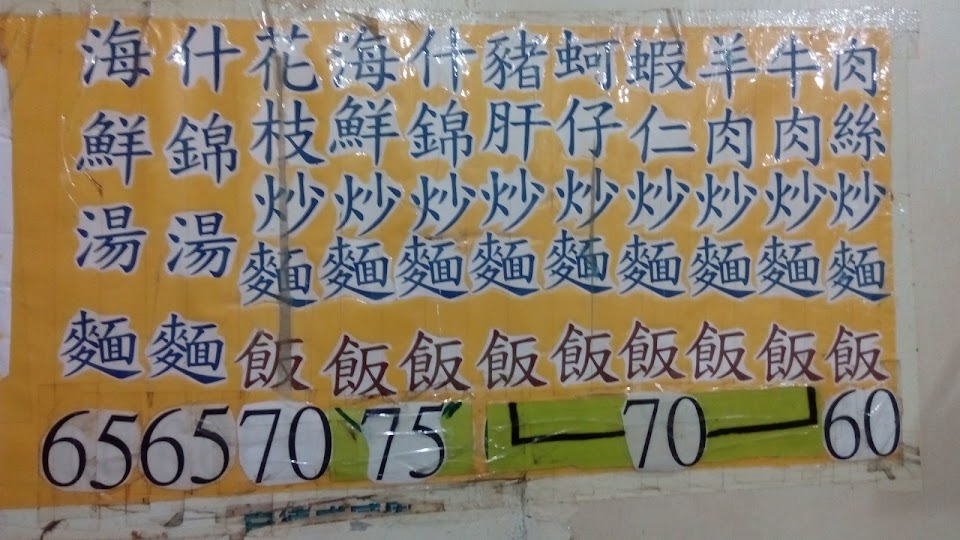 肉絲炒麵飯
60
牛肉炒麵飯
羊肉炒麵飯
蝦仁炒麵飯
蚵仔炒麵飯
豬肝炒麵飯
70
什錦炒麵飯
海鮮炒麵飯
75
花枝炒麵飯
70
什錦湯麵
65
海鮮湯麵
65